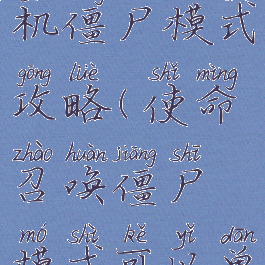 机僵尸模式
gōng lüè shǐ mìng
攻略(使命
zhào huàn jiāng shī
召唤僵尸
mó shì kě yǐ dān
模式可以单